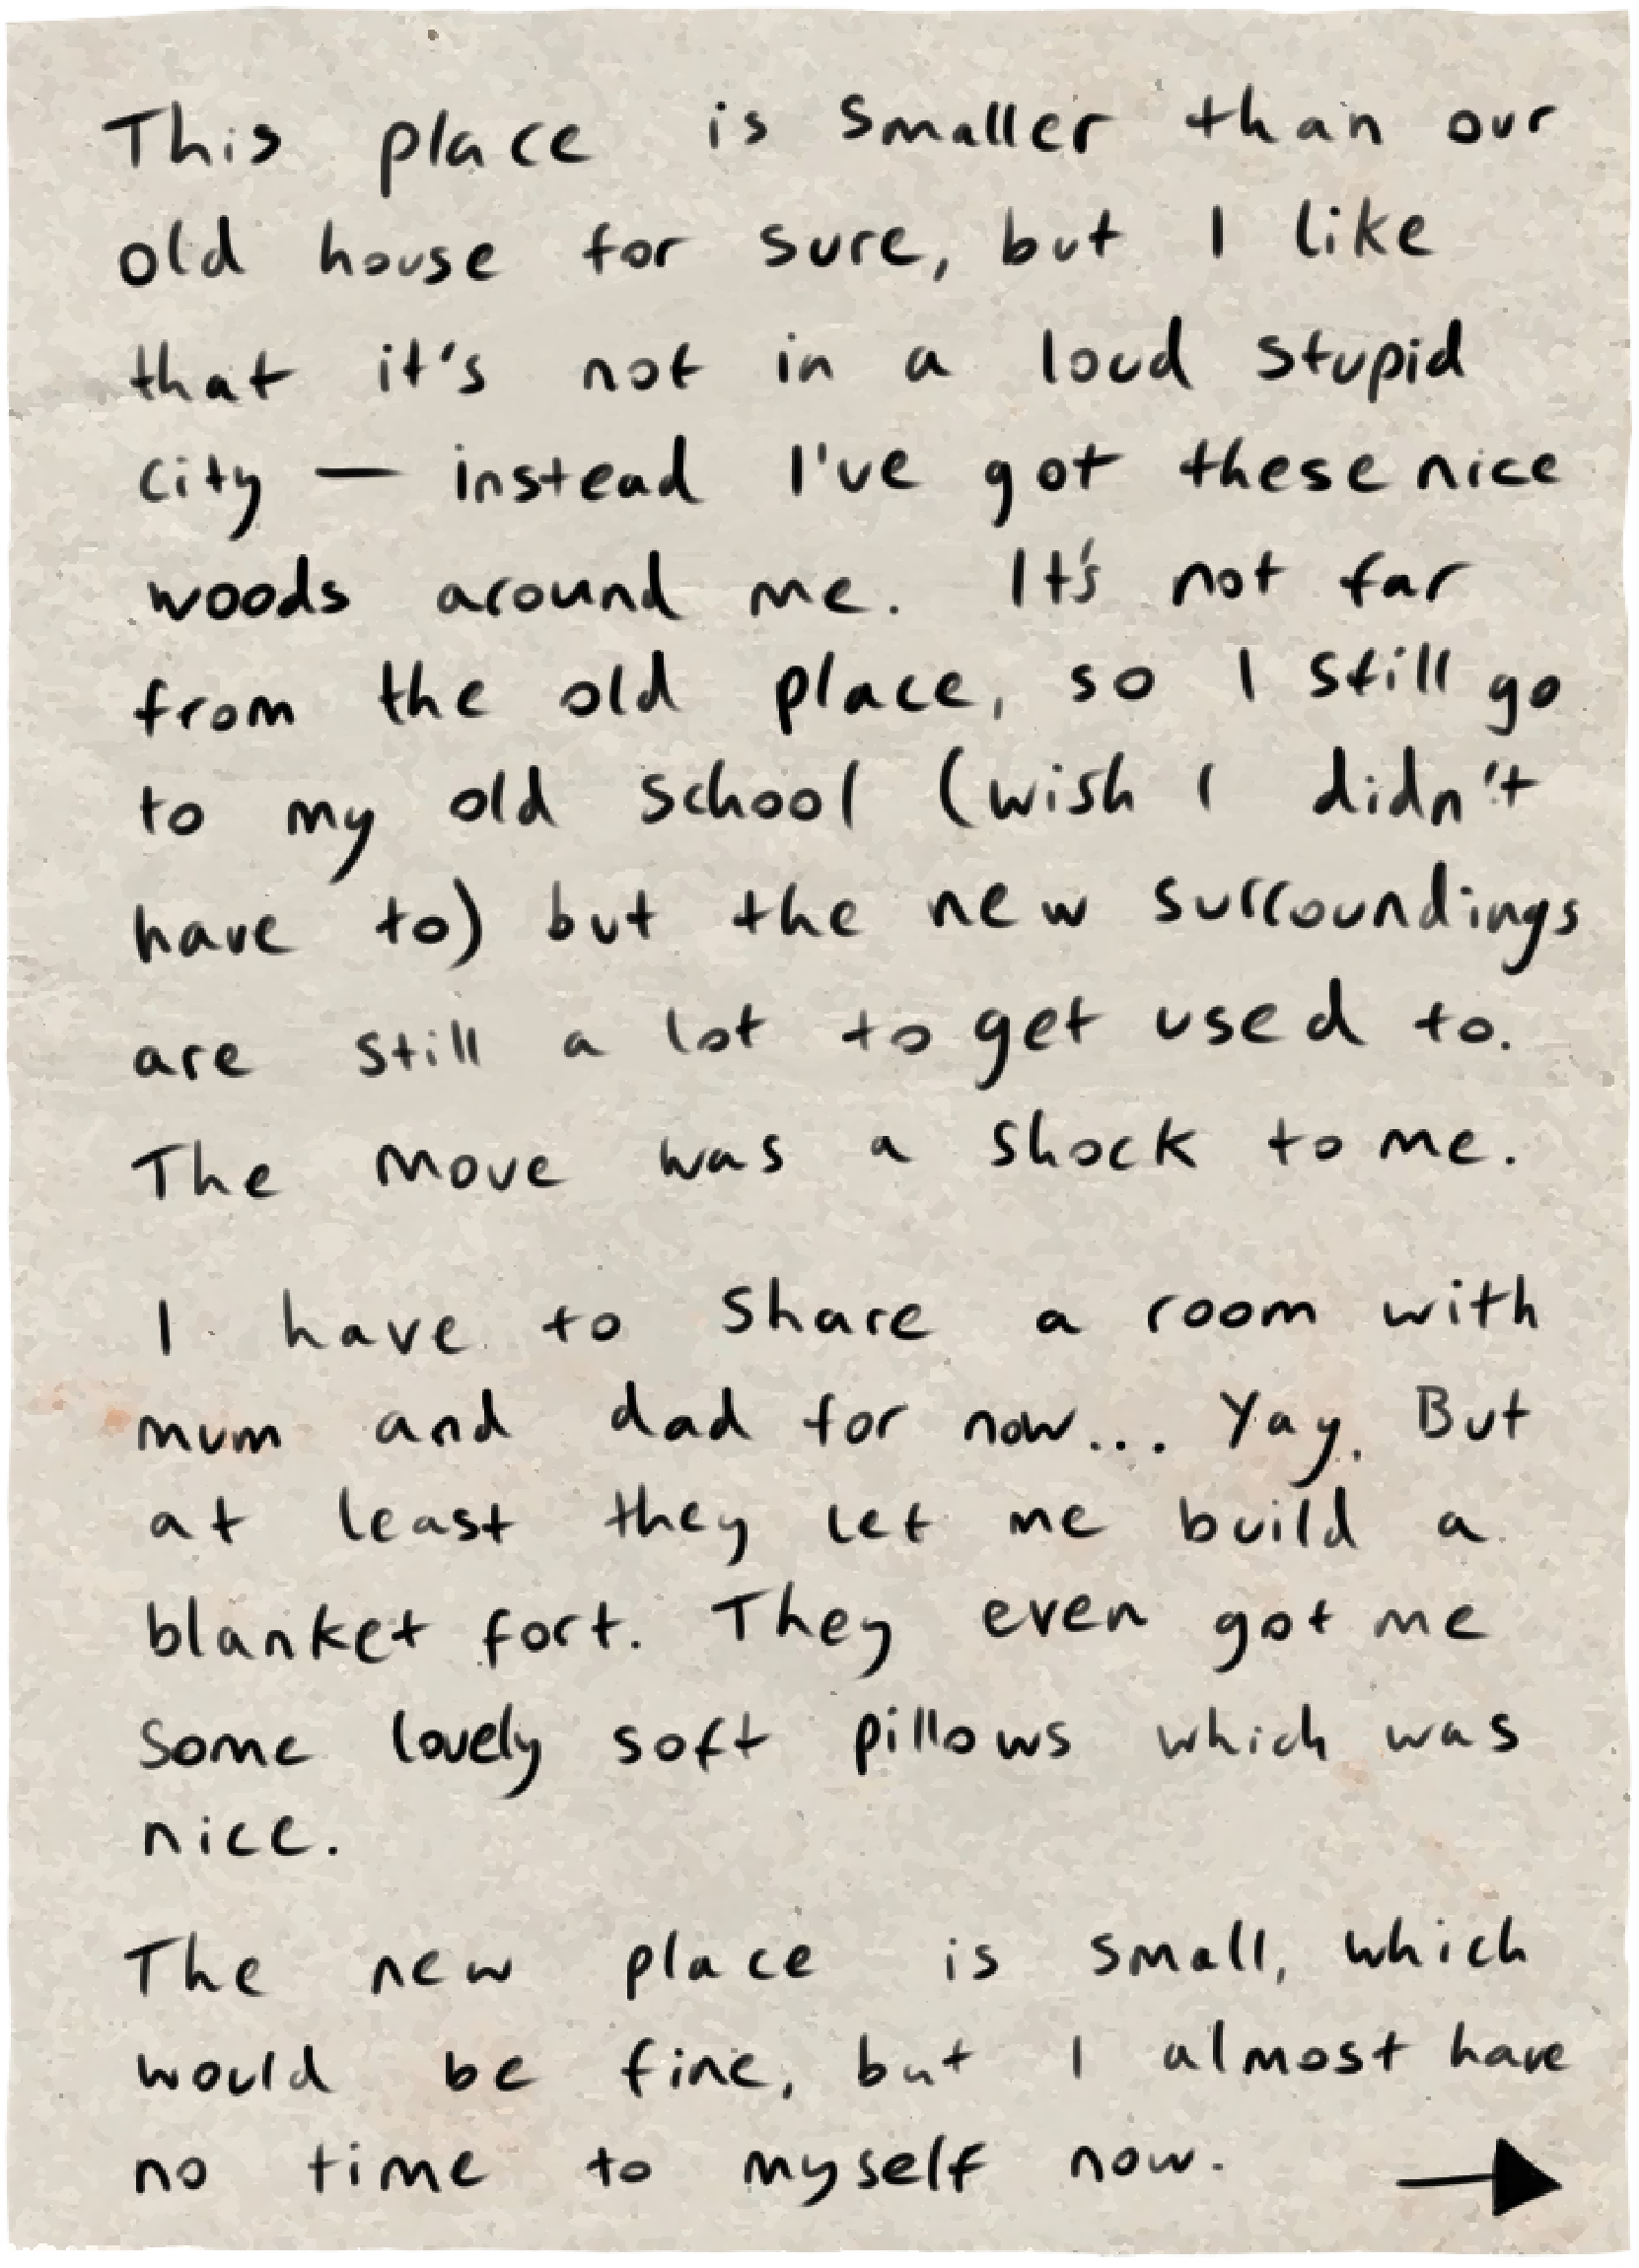 This place is smaller than our
old house for sure, but I like
that it's not in a loud stupid
city — instead I've got these nice
woods around me. It's not far
from the old place, so I still go
to my old school (wish I didn't
have to) but the new surroundings
are still a lot to get used to.
The move was a shock to me.
I have to share a room with
mum and dad for now... Yay. But
at least they let me build a
blanket fort. They even got me
some lovely soft pillows which was
nice.
The new place is small, which
would be fine, but I almost have
no time to myself now.